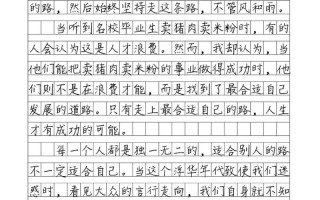 的路，然后始终坚持走这条路，不管风和雨。
当听到名校毕业生卖猪肉卖米粉时，有的
人会认为这是人才浪费。然而，我却认为，当
他们能把卖猪肉卖米粉的事业做得成功时，他
们则不是在浪费才能，而是找到了最合适自己
发展的道路。只有走上最合适自己的路，人生
才有成功的可能。
每一个人都是独一无二的，适合别人的路
不一定适合自己。当这个浮华年代致使我们迷
惑时，看见大众的言行走向，我们自身就不知